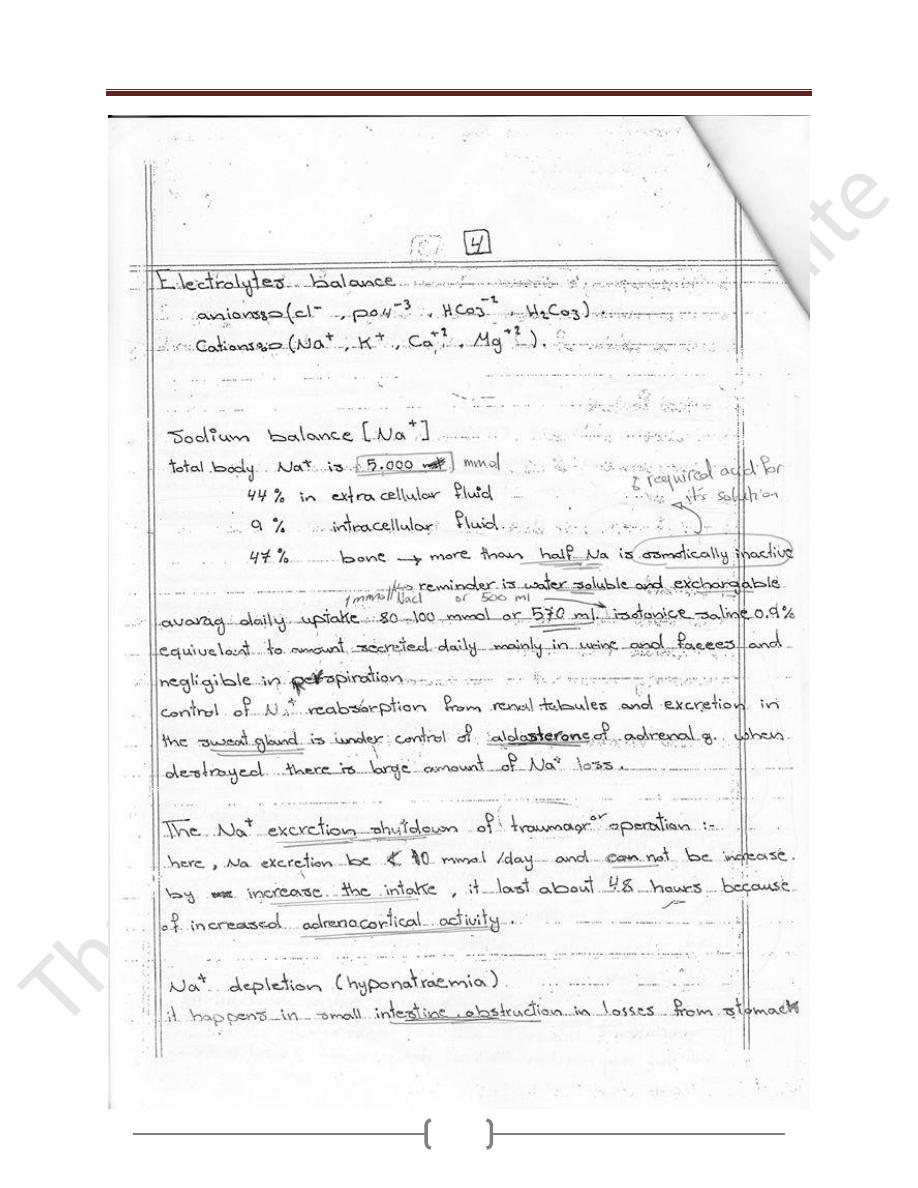 4
Electrolytes balance
anions:⇒ (cl⁻, po4⁻³, HCo3⁻², H2Co3).
Cations:⇒ (Na⁺, K⁺, Ca⁺², Mg⁺²).
Sodium balance [Na⁺]
total body Na⁺ is 5.000 mmol
44% in extracellular fluid
required acid for
its solution
9% intracellular fluid
47% bone → more than half Na is osmotically inactive
↳ reminder is water soluble and exchargable
1 mmol/ Nacl or 500 ml
avarag daily uptake 80-100 mmol or 570 ml. isotonice saline 0.9%
equivelant to amount secreted daily mainly in urine and faeces and
negligible in perspiration
control of Na⁺ reabsorption from renal tubules and excretion in
the sweat gland is under control of aldosterone of adrenal g. when
destrayed there is large amount of Na⁺ loss.
The Na⁺ excretion shutdown of trauma or operation :-
here, Na excretion be < 10 mmol/day and can not be increase
by increase the intake, it last about 48 hours because
of increased adrenocortical activity.
Na⁺ depletion (hyponatraemia)
it happens in small intestine obstruction in losses from stomach